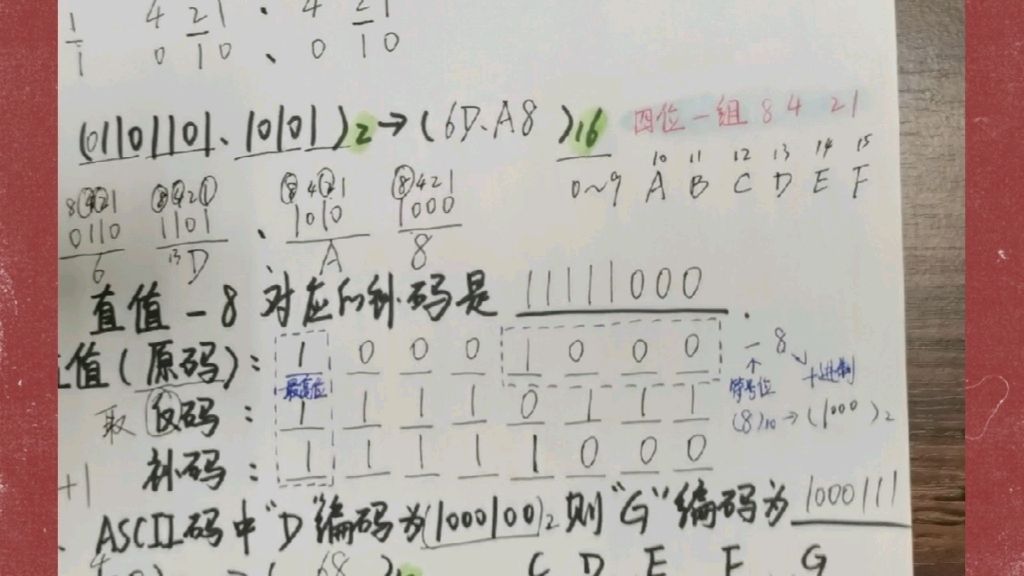 1 4 21 . 4 21
1 0 10 、 0 10
(01101101、10101)2→(6D、A8)16 四位一组 8 4 21
10 11 12 13 14 15
0~9 A B C D E F
8421 8421 8421 8421
0110 1101 、 1010 1000
6 13D A 8
真值-8对应的补码是 11111000 .
值(原码): 1 0 0 0 1 0 0 0 -8
最高位 符号位 十进制
取反码: 1 1 1 1 0 1 1 1 (8)10→(1000)2
+1 补码: 1 1 1 1 1 0 0 0
、ASCII码中"D"编码为(1000100)2则"G"编码为1000111
68 C D E F G